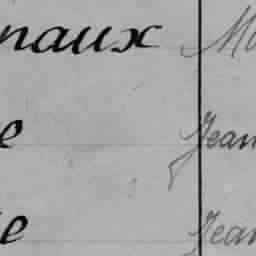 naux M
e Jean
e Jean